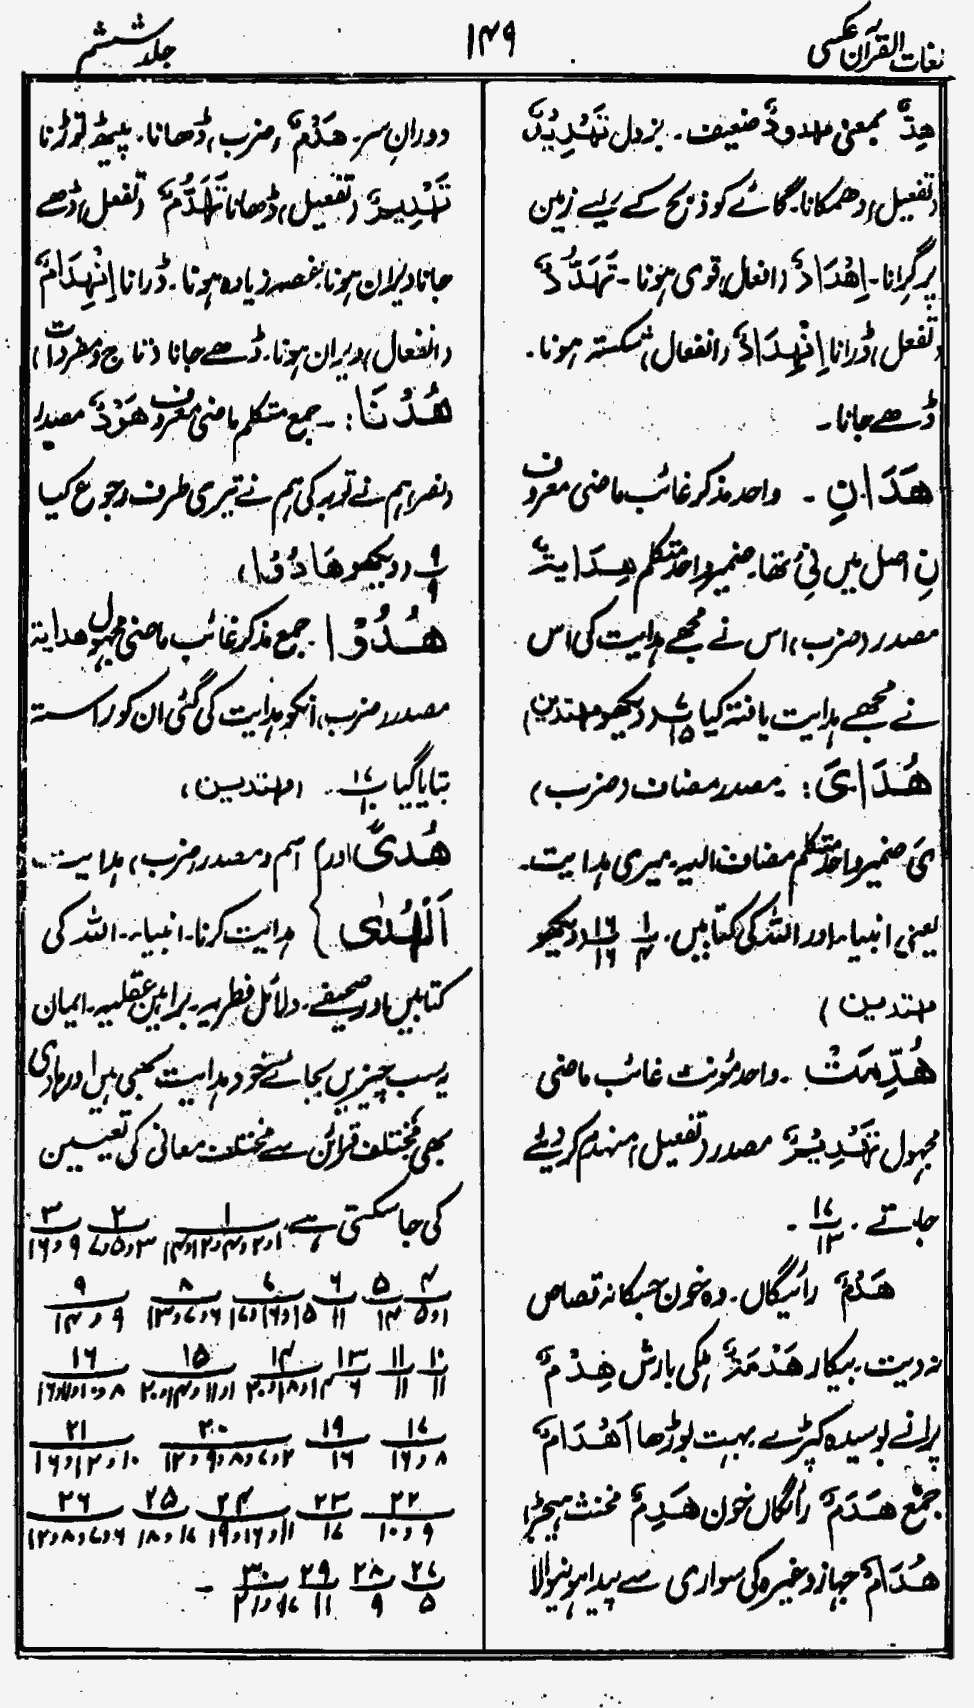 لغات القرآن عکسی
۱۴۹
جلد ششم
ھِدٌّ بمعنی مہدودٌ ضعیف۔ بزدل تَہْدِیْدٌ
(تفعیل) دھمکانا۔ گائے کو ذبح کے لیے زمین
پر گرانا۔ اِھْدَادٌ (افعال) قوی ہونا۔ تَہَدُّدٌ
(تفعل) ڈرانا اِنْہِدَادٌ (انفعال) شکستہ ہونا۔
ڈھے جانا۔
ھَدَانِ ۔ واحد مذکر غائب ماضی معروف
نِ اصل میں نِیْ تھا۔ ضمیر واحد متکلم ھِدَایَۃٌ
مصدر (ضرب) اس نے مجھے ہدایت کی اس
نے مجھے ہدایت یافتہ کیا ۷/۱۵ (دیکھو مہتدین)
ھُدَایَ: مصدر مضاف (ضرب)
یَ ضمیر واحد متکلم مضاف الیہ۔ میری ہدایت۔
یعنی انبیاء اور اللہ کی کتابیں۔ ۱/۴ ۱۶/۱۶ (دیکھو
مہتدین)
ھُدِّمَتْ ۔ واحد مؤنث غائب ماضی
مجہول تَہْدِیْمٌ مصدر (تفعیل) منہدم کر دیئے
جاتے ۔ ۱۷/۱۳ ۔
ھَدْمٌ رائیگاں۔ وہ خون جسکا نہ قصاص
نہ دیت۔ بیکار ھَدْمَۃٌ ہلکی بارش ھِدْمٌ
پرانے بوسیدہ کپڑے بہت بوڑھا اَھْدَامٌ
جمع ھَدَمٌ رائگاں خون ھَدِمٌ مخنث ہیجڑا
ھُدَامٌ جہاز وغیرہ کی سواری سے پیدا ہونیوالا
دوران سر۔ ھَدْمٌ (ضرب) ڈھانا۔ پیٹھ توڑنا
تَہْدِیْمٌ (تفعیل) ڈھانا تَہَدُّمٌ (تفعل) ڈھے
جانا ویران ہونا۔ غصہ زیادہ ہونا۔ ڈرانا اِنْہِدَامٌ
(انفعال) ویران ہونا۔ ڈھے جانا (تاج ومفردات)
ھُدْنَا: ۔ جمع متکلم ماضی معروف ھَوْدٌ مصدر
(نصر) ہم نے توبہ کی ہم نے تیری طرف رجوع کیا
۹/۹ (دیکھو ھَادُوْا)
ھُدُوْا جمع مذکر غائب ماضی مجہول ھدایۃ
مصدر (ضرب) انکو ہدایت کی گئی ان کو راستہ
بتایا گیا ۱۷/۱۰ ۔ (مہتدین)
ھُدًی اور } اسم ومصدر (ضرب) ہدایت۔
اَلْھُدٰی } ہدایت کرنا۔ انبیاء۔ اللہ کی
کتابیں اور صحیفے۔ دلائل فطریہ۔ براہین عقلیہ۔ ایمان
یہ سب چیزیں بجائے خود ہدایت بھی ہیں اور ہادی
بھی مختلف قرائن سے مختلف معانی کی تعیین
کی جا سکتی ہے، ۱/۱و۲و۴و۱۲و۱۴ ۲/۳و۵و۷ ۳/۹و۱۶
۴/۱و۵ ۵/۱۴ ۶/۱۱ ۷/۱۵و۱۶و۱۷ ۸/۶و۷و۱۳ ۹/۹و۱۴
۱۰/۱۱ ۱۱/۱۱ ۱۳/۶ ۱۴/۱و۱۸و۲۰ ۱۵/۱و۱۱و۱۴و۲۰ ۱۶/۸و۱۰و۱۱و۱۶
۱۷/۸و۱۶ ۱۹/۱۶ ۲۰/۲و۷و۸و۹و۱۲ ۲۱/۱۰و۱۲و۱۶
۲۲/۹و۱۰ ۲۳/۱۷ ۲۴/۱۱و۱۶و۱۹ ۲۵/۱۷و۱۸ ۲۶/۶و۷و۸و۱۲
۲۷/۵ ۲۸/۹ ۲۹/۱۱ ۳۰/۱۷و۲۱ ۔